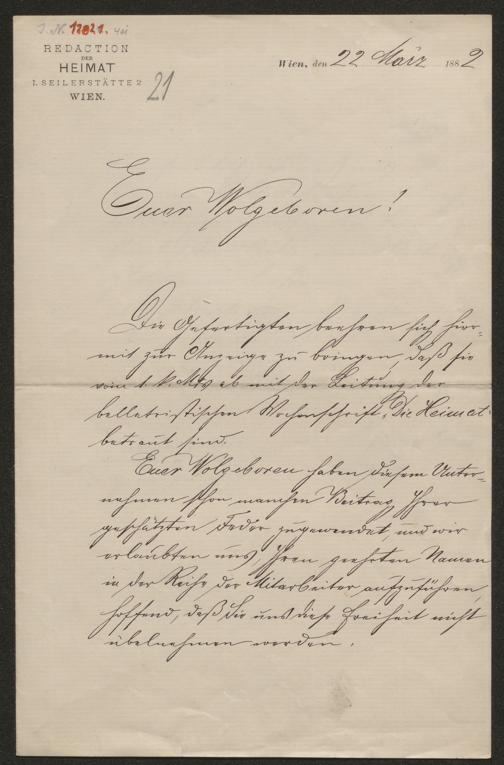 J. N. 12021.
REDACTION
DER
HEIMAT
I. SEILERSTÄTTE 2
WIEN.
21
Wien, den 22 März 1882
Euer Wolgeboren!
Die Gefertigten beehren sich hier-
mit zur Anzeige zu bringen, daß sie
vom 1. k. Mts ab mit der Leitung der
belletristischen Wochenschrift „Die Heimat“
betraut sind.
Euer Wolgeboren haben diesem Unter-
nehmen schon manchen Beitrag Ihrer
geschätzten Feder zugewendet, und wir
erlaubten uns Ihren geehrten Namen
in der Reihe der Mitarbeiter aufzuführen,
hoffend, daß Sie uns diese Freiheit nicht
übelnehmen werden.